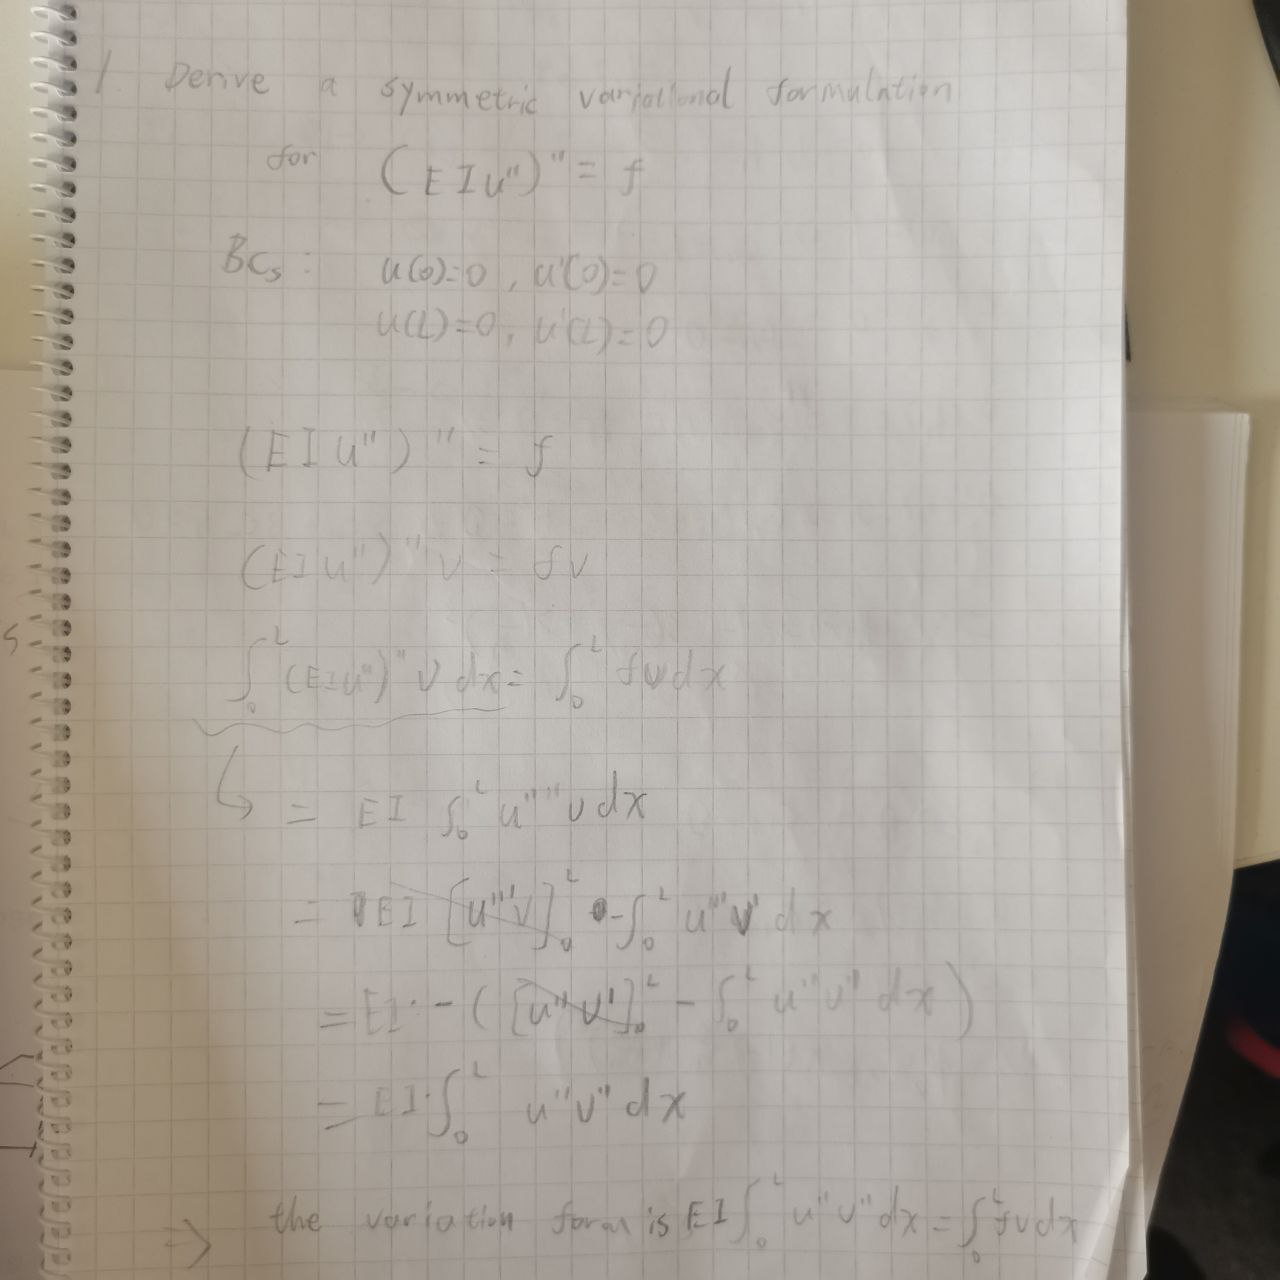 1. Derive a symmetric variational formulation
for (EIu'')'' = f
BCs: u(0)=0, u'(0)=0
u(L)=0, u'(L)=0
(EIu'')'' = f
(EIu'')''v = fv
∫₀ᴸ (EIu'')'' v dx = ∫₀ᴸ fv dx
↳ = EI ∫₀ᴸ u'''' v dx
= EI [u'''v]₀ᴸ - ∫₀ᴸ u'''v' dx
= EI · - ([u''v']₀ᴸ - ∫₀ᴸ u''v'' dx)
= EI · ∫₀ᴸ u''v'' dx
⇒ the variation form is EI ∫₀ᴸ u''v'' dx = ∫₀ᴸ fv dx